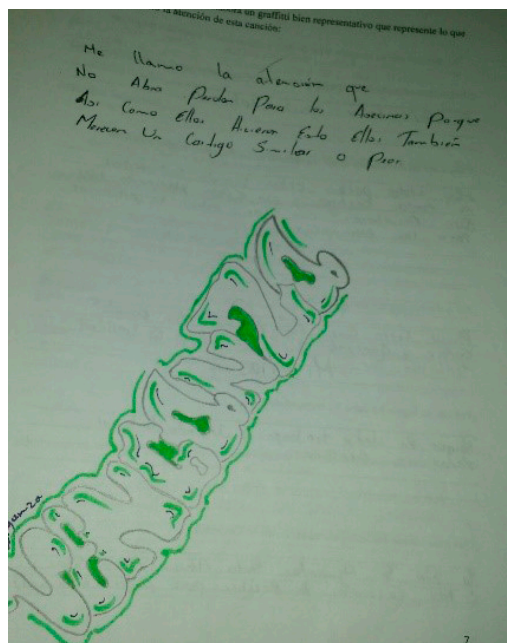 un graffitti bien representativo que represente lo que
la atención de esta canción:
Me llamo la atencion que
No Abra Perdon Para los Asecinos Porque
Asi Como Ellos Hicieron Esto Ellos También
Merecen Un Castigo Similar o Peor
7